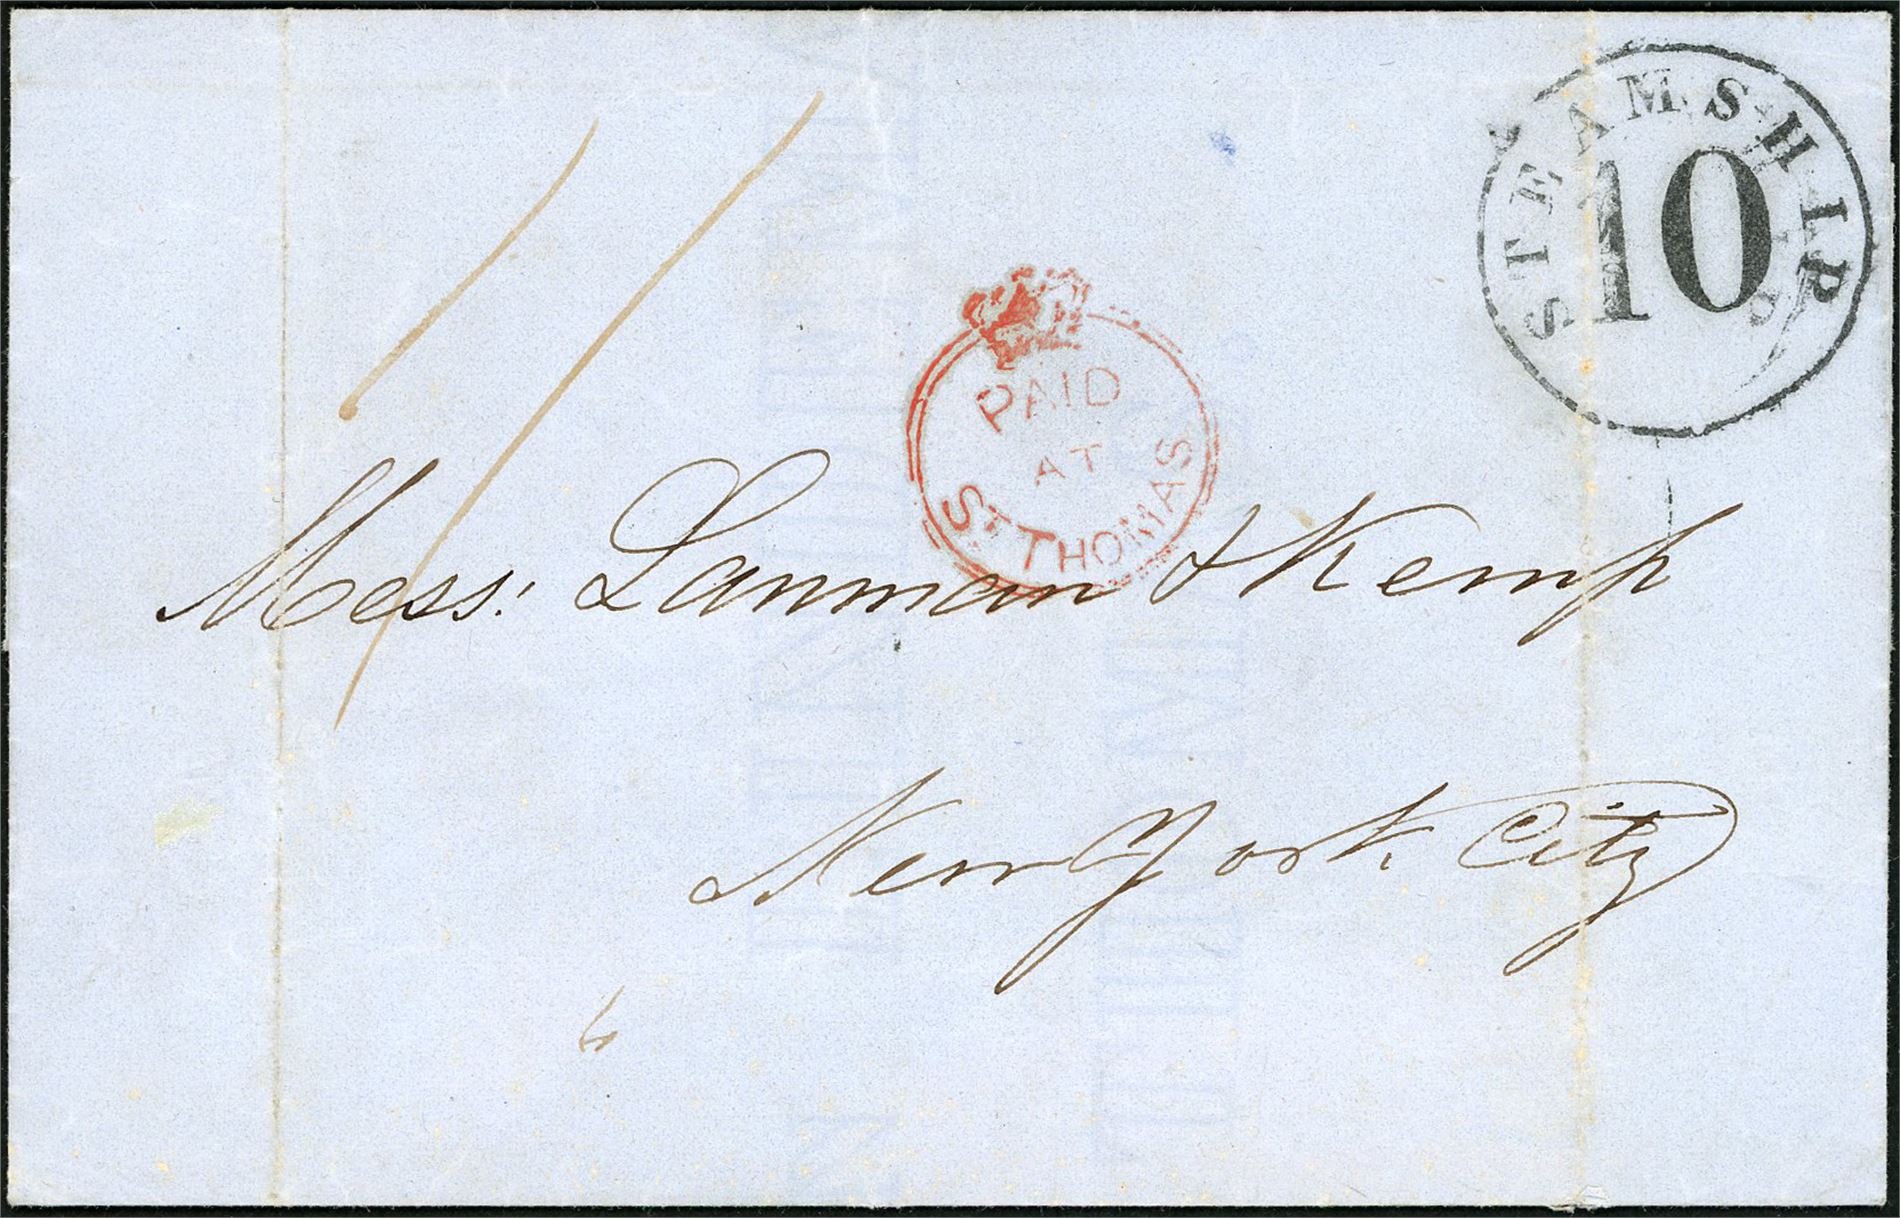 STEAMSHIP
10
1/
PAID
AT
ST THOMAS
Mess: Lanman & Kemp
New York City